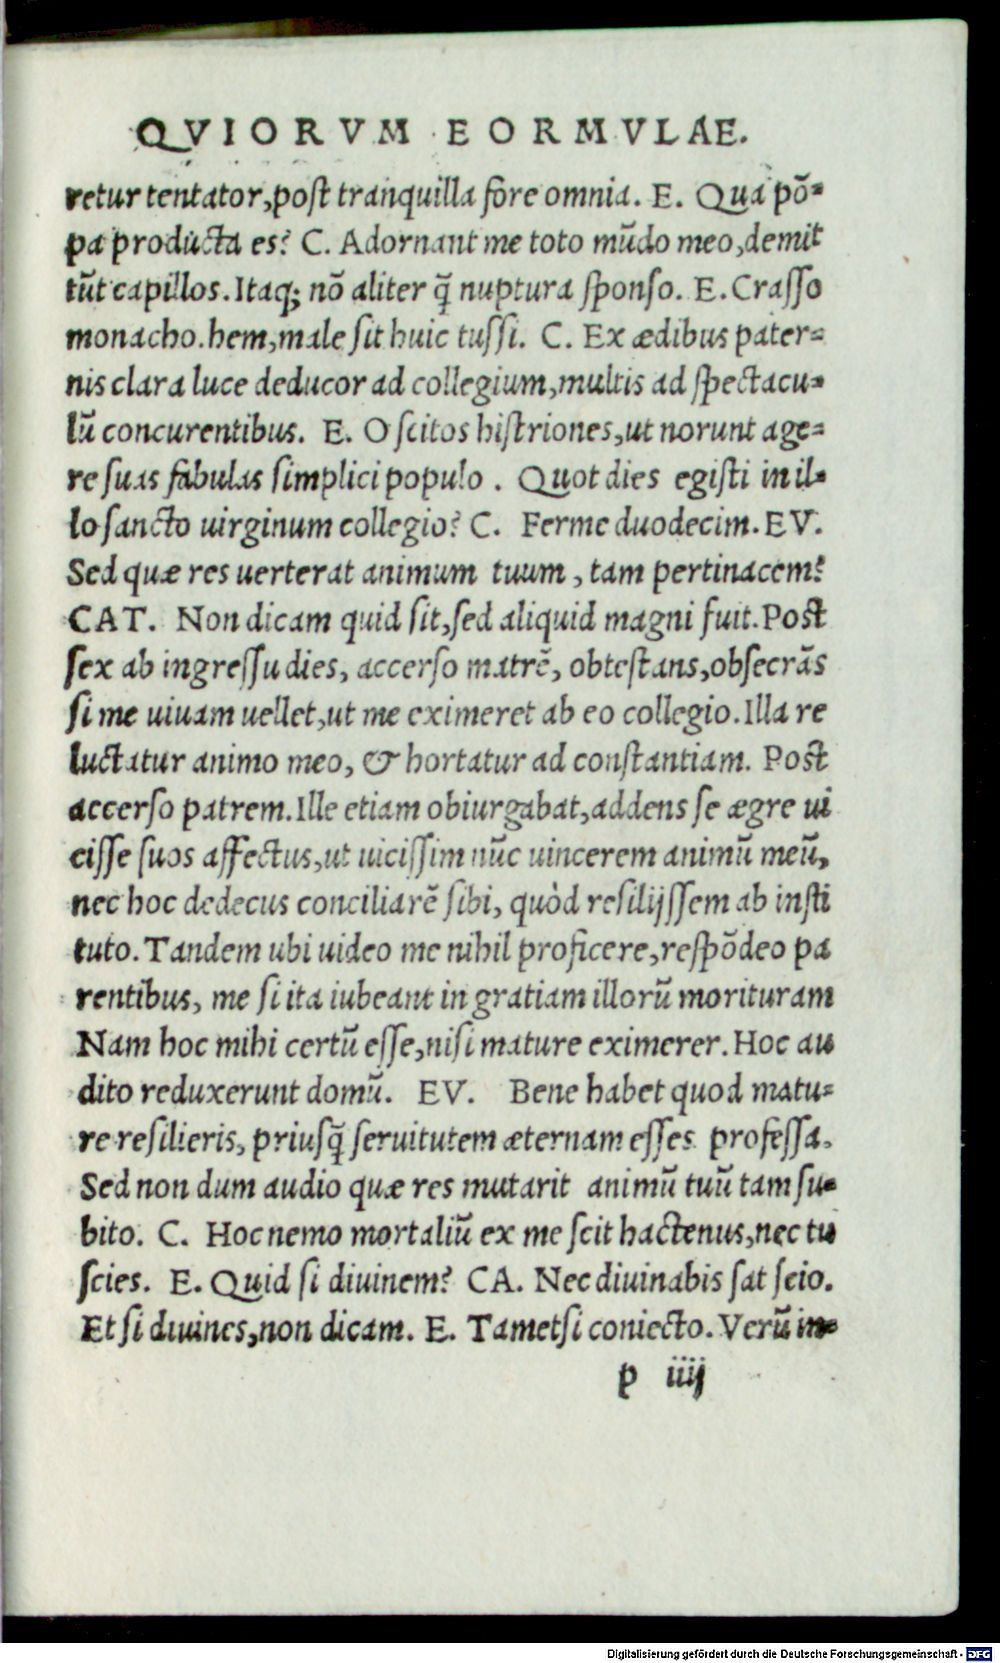 QVIORVM EORMVLAE.
retur tentator,post tranquilla fore omnia. E. Qua põ-
pa producta es? C. Adornant me toto mũdo meo,demit
tũt capillos. Itaq; nõ aliter q̃ nuptura sponso. E. Crasso
monacho. hem,male sit huic tussi. C. Ex ædibus pater-
nis clara luce deducor ad collegium,multis ad spectacu-
lũ concurentibus. E. O scitos histriones,ut norunt age-
re suas fabulas simplici populo . Quot dies egisti in il-
lo sancto uirginum collegio? C. Ferme duodecim. EV.
Sed quæ res uerterat animum tuum , tam pertinacem?
CAT. Non dicam quid sit,sed aliquid magni fuit. Post
sex ab ingressu dies, accerso matrẽ, obtestans,obsecrãs
si me uiuam uellet,ut me eximeret ab eo collegio. Illa re
luctatur animo meo, & hortatur ad constantiam. Post
accerso patrem. Ille etiam obiurgabat,addens se ægre ui
cisse suos affectus,ut uicissim nũc uincerem animũ meũ,
nec hoc dedecus conciliarẽ sibi, quòd resilijssem ab insti
tuto. Tandem ubi uideo me nihil proficere,respõdeo pa
rentibus, me si ita iubeant in gratiam illorũ morituram
Nam hoc mihi certũ esse,nisi mature eximerer. Hoc au
dito reduxerunt domũ. EV. Bene habet quod matu-
re resilieris, priusq̃ seruitutem æternam esses professa.
Sed non dum audio quæ res mutarit animũ tuũ tam su-
bito. C. Hoc nemo mortaliũ ex me scit hactenus,nec tu
scies. E. Quid si diuinem? CA. Nec diuinabis sat scio.
Et si diuines,non dicam. E. Tametsi coniecto. Verũ in-
p iiij
Digitalisierung gefördert durch die Deutsche Forschungsgemeinschaft - DFG